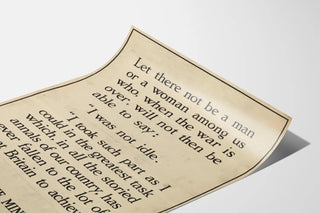 Let there not be a man
or a woman among us
who, when the war is
over, will not then be
able to say:
"I was not idle.
"I took such part as I
could in the greatest task
which, in all the storied
annals of our country, has
ever fallen to the lot of
Britain to achiev
MIN